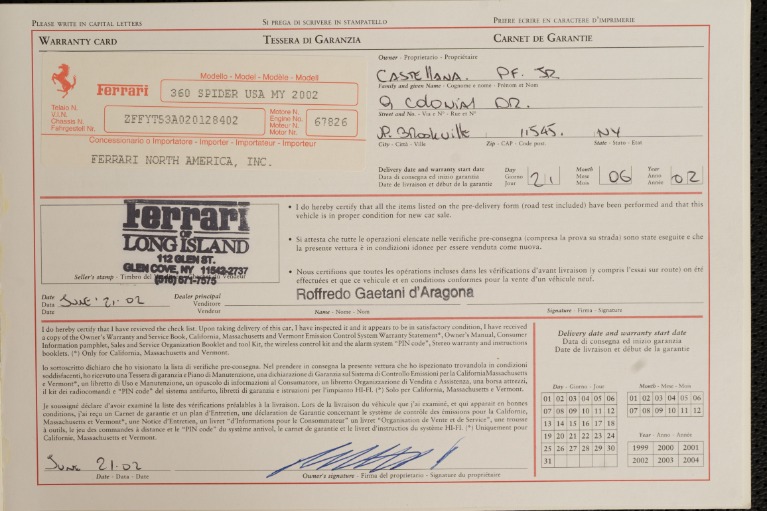 PLEASE WRITE IN CAPITAL LETTERS
SI PREGA DI SCRIVERE IN STAMPATELLO
PRIERE ECRIRE EN CARACTERE D'IMPRIMERIE
WARRANTY CARD
TESSERA DI GARANZIA
CARNET DE GARANTIE
Ferrari
Modello - Model - Modèle - Modell
360 SPIDER USA MY 2002
Telaio N.
V.I.N.
Chassis N.
Fahrgestell Nr.
ZFFYT53A020128402
Motore N.
Engine No.
Moteur N.
Motor Nr.
67826
Concessionario o Importatore - Importer - Importateur - Importeur
FERRARI NORTH AMERICA, INC.
Owner - Proprietario - Propriétaire
CASTELLANA. P.F. JR
Family and given Name - Cognome e nome - Prénom et Nom
9 Colonial DR.
Street and No. - Via e N° - Rue et N°
P. Brookville 11545. NY
City - Città - Ville
Zip - CAP - Code post.
State - Stato - Etat
Delivery date and warranty start date
Data di consegna ed inizio garanzia
Date de livraison et début de la garantie
Day
Giorno
Jour
21
Month
Mese
Mois
06
Year
Anno
Année
02
Ferrari
OF
LONG ISLAND
112 GLEN ST.
GLEN COVE, NY 11542-2737
(516) 671-7575
Seller's stamp - Timbro del Venditore
• I do hereby certify that all the items listed on the pre-delivery form (road test included) have been performed and that this
vehicle is in proper condition for new car sale.
• Si attesta che tutte le operazioni elencate nelle verifiche pre-consegna (compresa la prova su strada) sono state eseguite e che
la presente vettura è in condizioni idonee per essere venduta come nuova.
• Nous certifions que toutes les opérations incluses dans les vérifications d'avant livraison (y compris l'essai sur route) on été
effectuées et que ce véhicule et en conditions conformes pour la vente d'un véhicule neuf.
Date
Data
Date
JUNE 21-02
Dealer principal
Venditore
Vendeur
Roffredo Gaetani d'Aragona
Name - Nome - Nom
Signature - Firma - Signature
I do hereby certify that I have reviewed the check list. Upon taking delivery of this car, I have inspected it and it appears to be in satisfactory condition, I have received
a copy of the Owner's Warranty and Service Book, California, Massachusetts and Vermont Emission Control System Warranty Statement*, Owner's Manual, Consumer
Information pamphlet, Sales and Service Organization Booklet and tool Kit, the wireless control kit and the alarm system "PIN code", Stereo warranty and instructions
booklets. (*) Only for California, Massachusetts and Vermont.
Io sottoscritto dichiaro che ho visionato la lista di verifiche pre-consegna. Nel prendere in consegna la presente vettura che ho ispezionato trovandola in condizioni
soddisfacenti, ho ricevuto una Tessera di garanzia e Piano di Manutenzione, una dichiarazione di Garanzia sul Sistema di Controllo Emissioni per la California Massachusetts
e Vermont*, un libretto di Uso e Manutenzione, un opuscolo di informazioni al Consumatore, un libretto Organizzazione di Vendita e Assistenza, una borsa attrezzi,
il kit dei radiocomandi e "PIN code" del sistema antifurto, libretti di garanzia e istruzioni per l'impianto HI-FI. (*) Solo per California, Massachusetts e Vermont.
Je soussigné déclare d'avoir examiné le liste des vérifications préalables à la livraison. Lors de la livraison du véhicule que j'ai examiné, et qui apparait en bonnes
conditions, j'ai reçu un Carnet de Garantie et un plan d'Entretien, une déclaration de Garantie concernant le système de contrôle des émissions pour la California,
Massachusetts et Vermont*, une Notice d'Entretien, un livret "d'Informations pour le Consommateur" un livret "Organisation de Vente et de Service", une trousse
à outils, le jeu des commandes à distance et le "PIN code" du système antivol, le carnet de garantie et le livret d'instructions du système HI-FI. (*) Uniquement pour
California, Massachusetts et Vermont.
JUNE 21-02
Date - Data - Date
Owner's signature - Firma del proprietario - Signature du propriétaire
Delivery date and warranty start date
Data di consegna ed inizio garanzia
Date de livraison et début de la garantie
Day - Giorno - Jour
Month - Mese - Mois
01 02 03 04 05 06
07 08 09 10 11 12
13 14 15 16 17 18
19 20 21 22 23 24
25 26 27 28 29 30
31
01 02 03 04 05 06
07 08 09 10 11 12
Year - Anno - Année
1999 2000 2001
2002 2003 2004